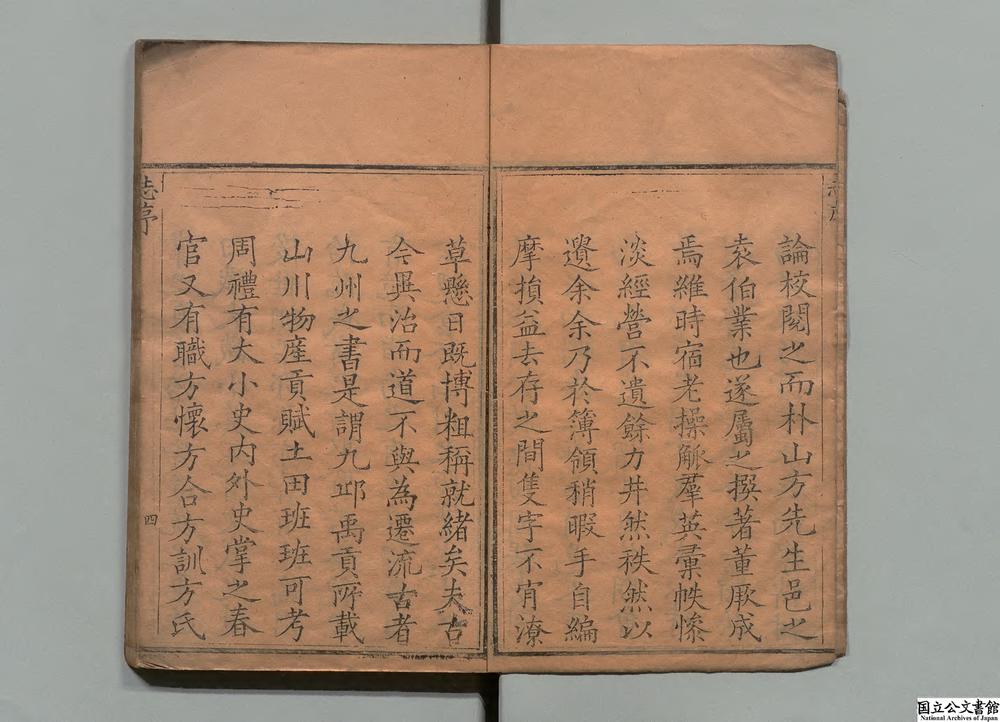 論校閱之而朴山方先生邑之
袁伯業也遂屬之撰著董厥成
焉維時宿老操觚羣英彙帙慘
淡經營不遺餘力井然秩然以
遺余余乃於簿領稍暇手自編
摩損益去存之間隻字不肯潦
草懸日既博粗稱就緒矣夫古
今異治而道不與為遷流古者
九州之書是謂九邱禹貢所載
山川物產貢賦土田班班可考
周禮有大小史內外史掌之春
官又有職方懷方合方訓方氏
志序
四
国立公文書館
National Archives of Japan